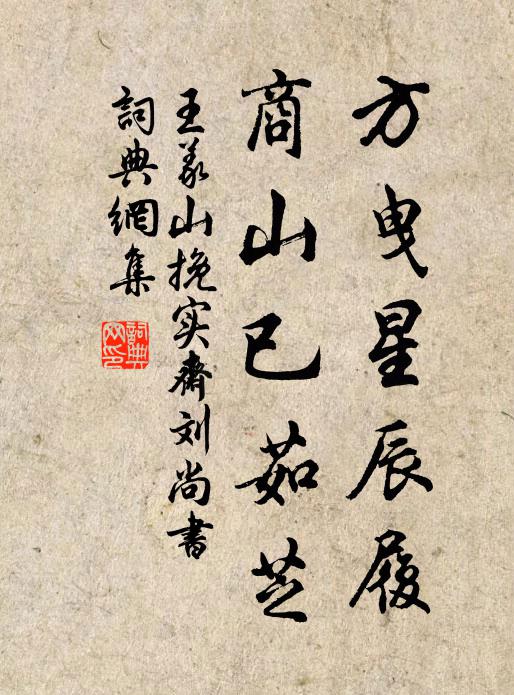 方曳星辰履
商山已茹芝
王义山挽实斋刘尚书
詞典網集
詞典網印